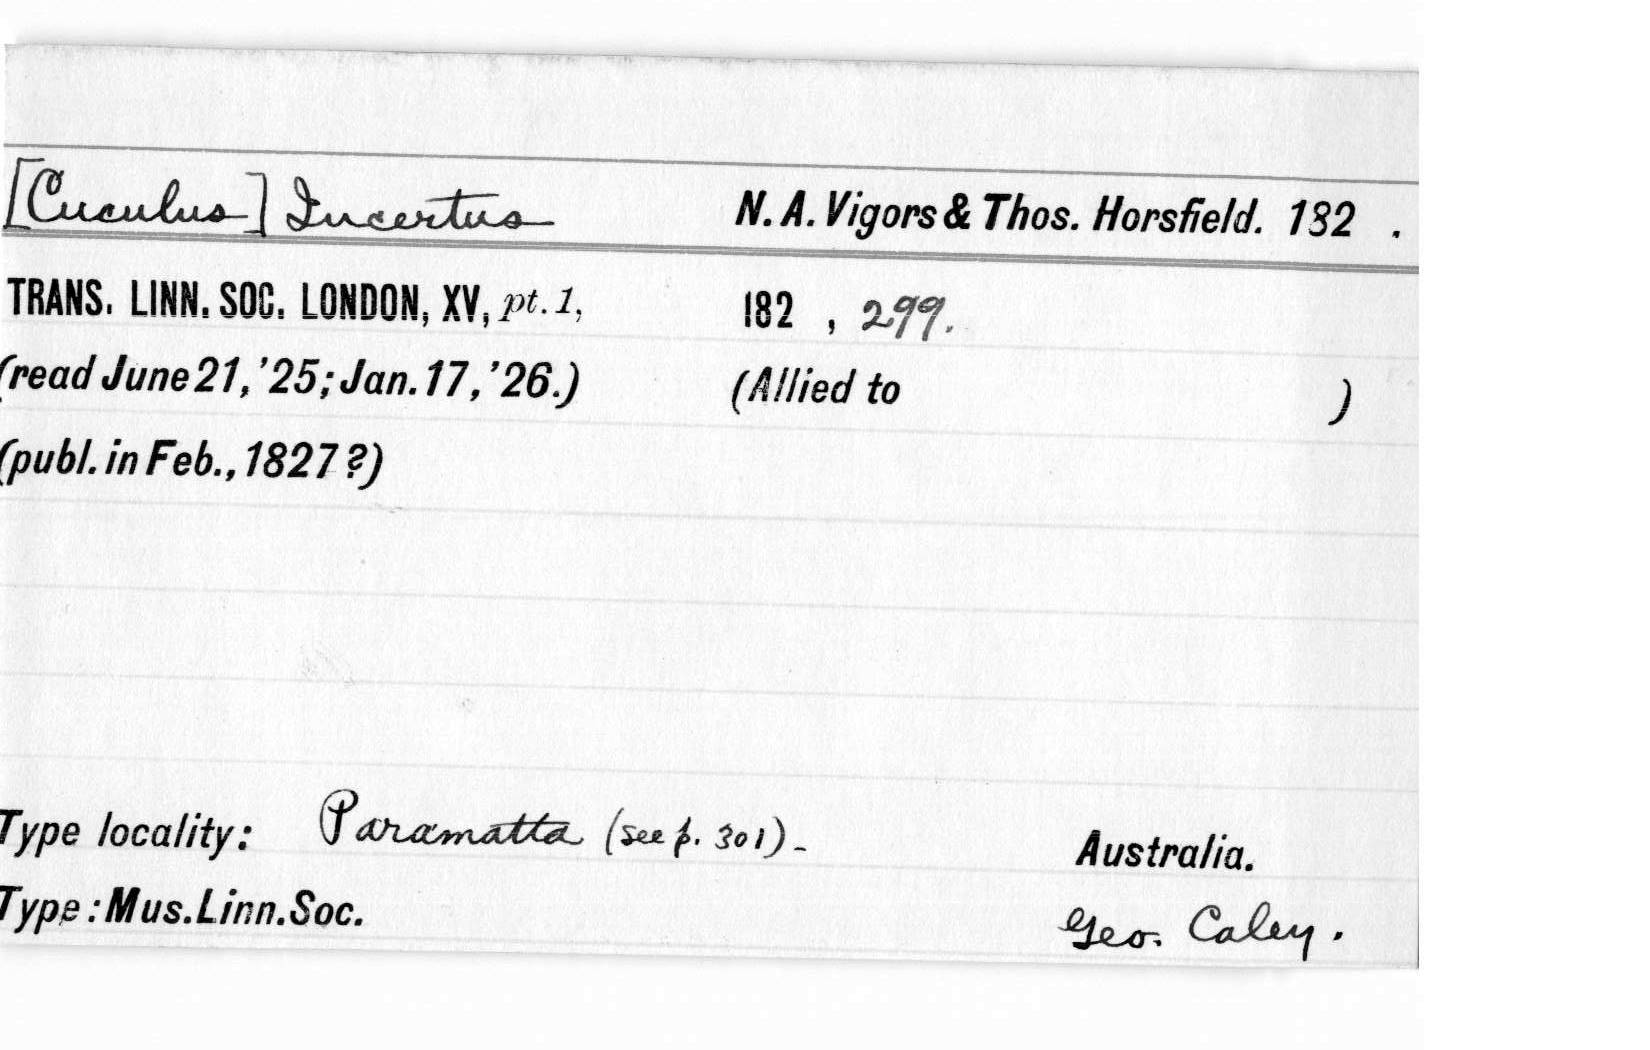 [Cuculus] Incertus N. A. Vigors & Thos. Horsfield. 182 .
TRANS. LINN. SOC. LONDON, XV, pt. 1, 182 , 299.
(read June 21, '25; Jan. 17, '26.) (Allied to )
(publ. in Feb., 1827?)
Type locality: Paramatta (see p. 301). Australia.
Type: Mus. Linn. Soc. Geo. Caley.